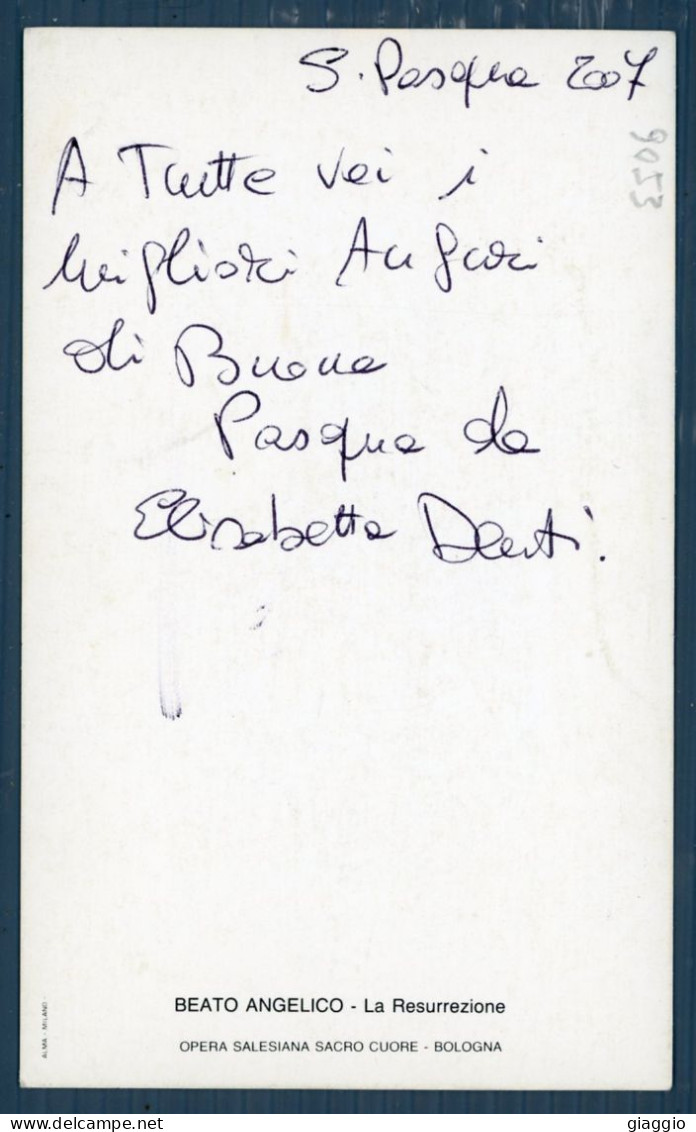 S. Pasqua 2007
9053
A Tutte voi i
migliori Auguri
di Buona
Pasqua da
Elisabetta
BEATO ANGELICO - La Resurrezione
OPERA SALESIANA SACRO CUORE - BOLOGNA
ALMA - MILANO -
giaggio